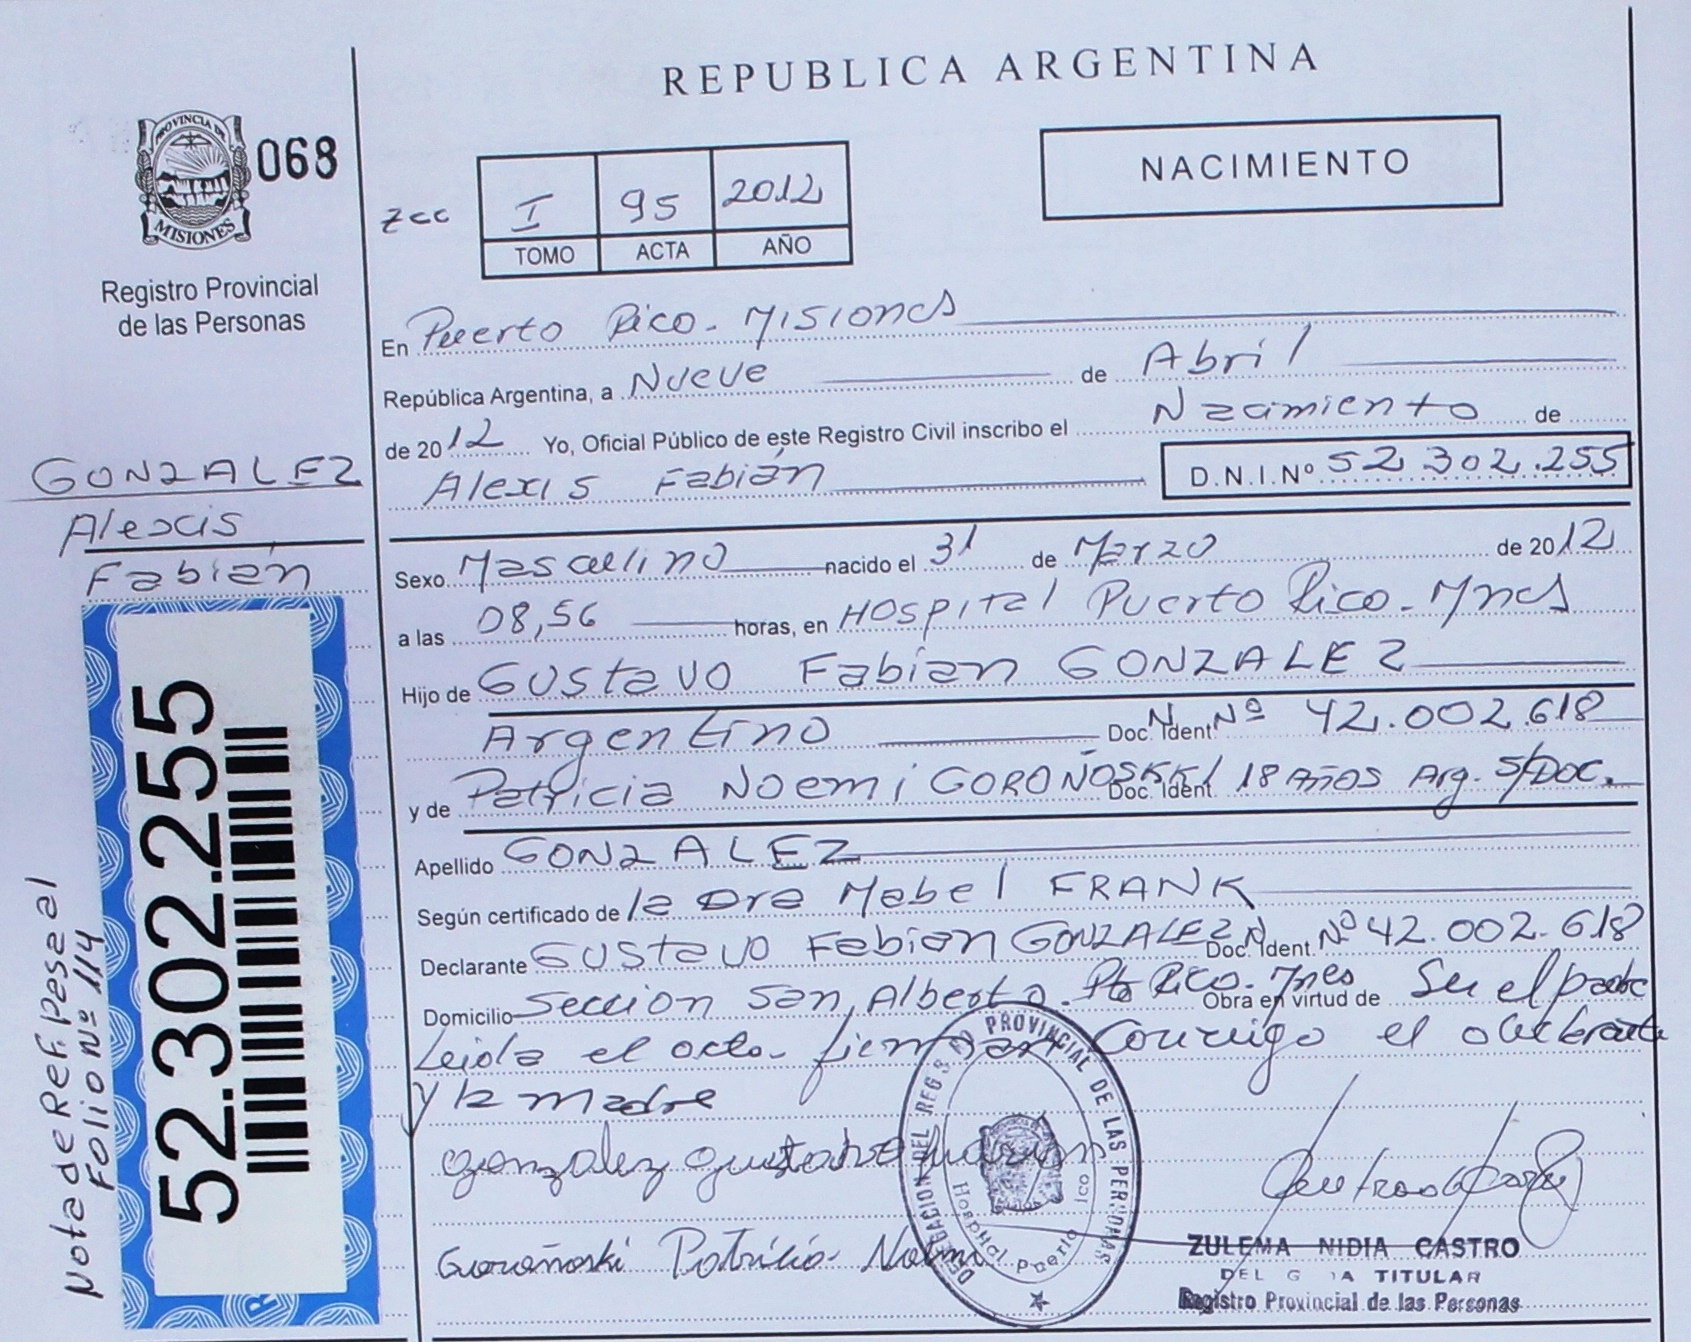 REPUBLICA ARGENTINA
PROVINCIA DE
MISIONES
068
Registro Provincial
de las Personas
zcc
I 95 2012
TOMO ACTA AÑO
NACIMIENTO
En Puerto Rico. Misiones
República Argentina, a Nueve de Abril
de 2012 Yo, Oficial Público de este Registro Civil inscribo el Nacimiento de
Alexis Fabián D.N.I.Nº 52.302.255
GONZALEZ
Alexis
Fabián
Sexo Masculino nacido el 31 de Marzo de 2012
a las 08,56 horas, en Hospital Puerto Rico. Mnes
Hijo de Gustavo Fabian GONZALEZ
Argentino Doc. N. Ident. Nº 42.002.618
y de Patricia Noemi GOROÑOSKI Doc. Ident. 18 AÑOS Arg. S/DOC.
Apellido GONZALEZ
Según certificado de la Dra Mabel FRANK
Declarante Gustavo Fabian GONZALEZ Doc. N. Ident. Nº 42.002.618
Domicilio Sección San Alberto. Pto Rico. Mnes Obra en virtud de Ser el padre
Leida el acta firman conmigo el declarante
y la madre
gonzalez gustavo fabian
Goroñoski Patricia Noemi
52.302.255
Nota de Ref. Pasa al
Folio Nº 114
DELEGACION DEL REG PROVINCIAL DE LAS PERSONAS
Hospital Puerto ico
ZULEMA NIDIA CASTRO
DEL G DA TITULAR
Registro Provincial de las Personas